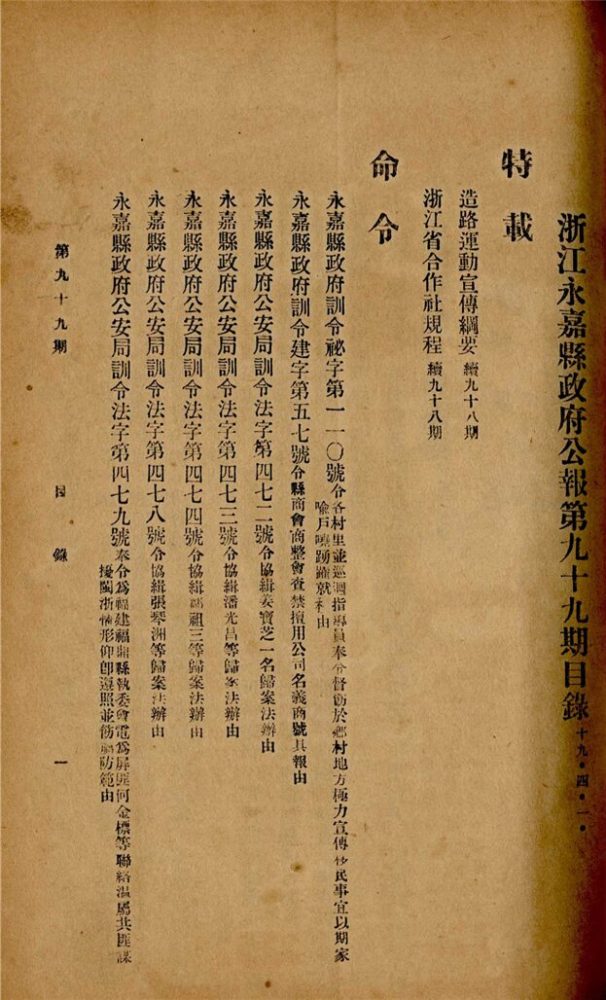 浙江永嘉縣政府公報第九十九期目錄 十九・四・一・
特載
造路運動宣傳綱要 續九十八期
浙江省合作社規程 續九十八期
命令
永嘉縣政府訓令祕字第一一〇號 令各村里並巡迴指導員奉令督飭於鄉村地方極力宣傳 民事宜以期家
喻戶曉踴躍就 由
永嘉縣政府訓令建字第五七號 令縣商會商整會查禁擅用公司名義商號具報由
永嘉縣政府公安局訓令法字第四七二號 令協緝 寶芝一名歸案法辦由
永嘉縣政府公安局訓令法字第四七三號 令協緝潘光昌等歸案法辦由
永嘉縣政府公安局訓令法字第四七四號 令協緝 祖三等歸案法辦由
永嘉縣政府公安局訓令法字第四七八號 令協緝張琴洲等歸案法辦由
永嘉縣政府公安局訓令法字第四七九號 奉令爲福建福鼎縣執委會電爲屏匪何金標等聯絡溫屬共匪謀
擾閩浙情形仰卽遵照並飭屬防範由
第九十九期
目錄
一